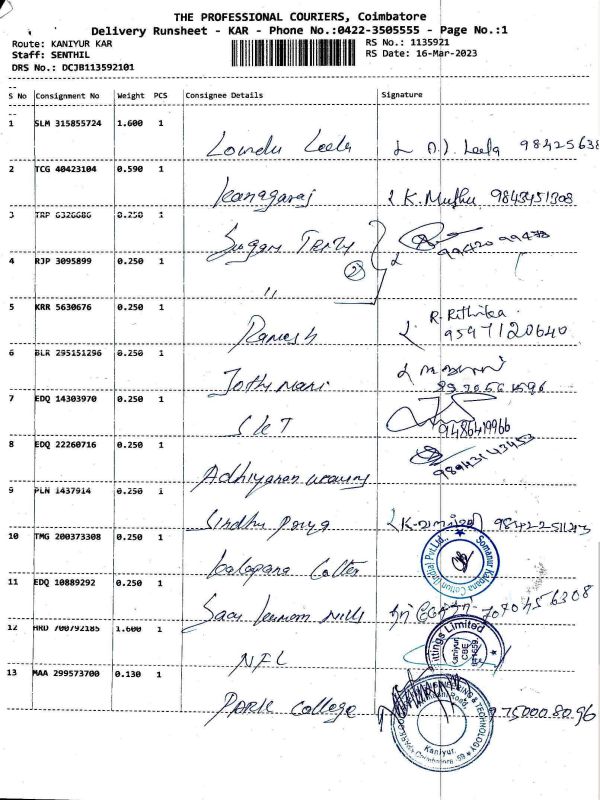 THE PROFESSIONAL COURIERS, Coimbatore
Delivery Runsheet - KAR - Phone No.:0422-3505555 - Page No.:1
Route: KANIYUR KAR
RS No.: 1135921
Staff: SENTHIL
RS Date: 16-Mar-2023
DRS No.: DCJB113592101
S No Consignment No Weight PCS Consignee Details Signature
1 SLM 315855724 1.600 1
Lourdu Leela L D.J. Leela 98425638
2 TCG 40423104 0.590 1
Kanagaraj K. Muthu 9843451308
3 TRP 6326686 0.250 1
Sugam
99420 99478
4 RJP 3095899 0.250 1
(2)
"
5 KRR 5630676 0.250 1
R. Rithika
Ramesh 9597120640
6 BLR 295151296 0.250 1
Jothi Mani
7 EDQ 14303970 0.250 1
SKT 9486419966
8 EDQ 22260716 0.250 1
Adhiyaman weaving
9 PLN 1437914 0.250 1
Sindhu Poriya
10 TMG 200373308 0.250 1
Somanur Kalpana Cotton (India) Pvt.Ltd.,
Kalapana Cotton
11 EDQ 10889292 0.250 1
Mills 7070456308
12 HRD 700792185 1.600 1
ittings Limited
Kaniyur
CBE
NFL
13 MAA 299573700 0.130 1
PARK College 9750008096
ENGINEERING & TECHNOLOGY
Kaniyur,
Coimbatore -59